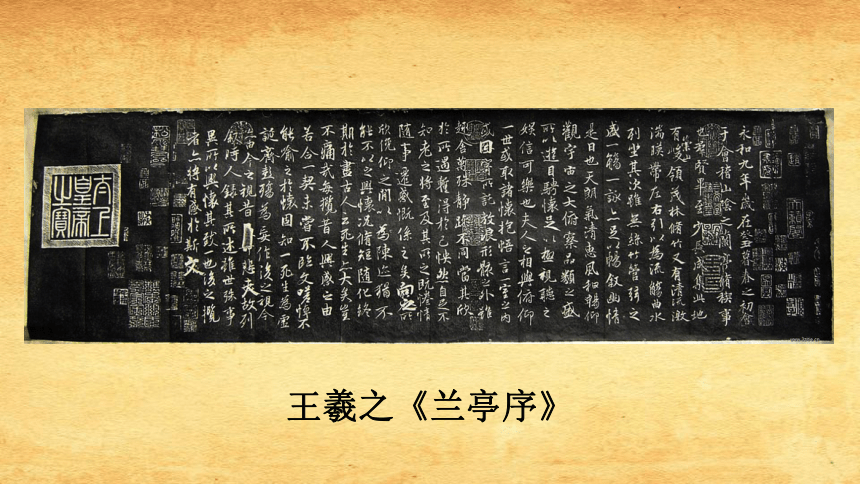 永和九年歲在癸丑暮春之初會
于會稽山陰之蘭亭脩稧事
也群賢畢至少長咸集此地
有崇山峻領茂林脩竹又有清流激
湍暎帶左右引以為流觴曲水
列坐其次雖無絲竹管弦之
盛一觴一詠亦足以暢叙幽情
是日也天朗氣清惠風和暢仰
觀宇宙之大俯察品類之盛
所以遊目騁懷足以極視聽之
娛信可樂也夫人之相與俯仰
一世或取諸懷抱悟言一室之內
或因寄所託放浪形骸之外雖
趣舍萬殊靜躁不同當其欣
於所遇蹔得於己怏然自足不
知老之將至及其所之既惓情
隨事遷感慨係之矣向之所
欣俛仰之閒以為陳迹猶不
能不以之興懷況脩短隨化終
期於盡古人云死生亦大矣豈
不痛哉每攬昔人興感之由
若合一契未嘗不臨文嗟悼不
能喻之於懷固知一死生為虛
誕齊彭殤為妄作後之視今
亦由今之視昔悲夫故列
敘時人錄其所述雖世殊事
異所以興懷其致一也後之攬
者亦將有感於斯文
太上皇帝之寶
王羲之《兰亭序》